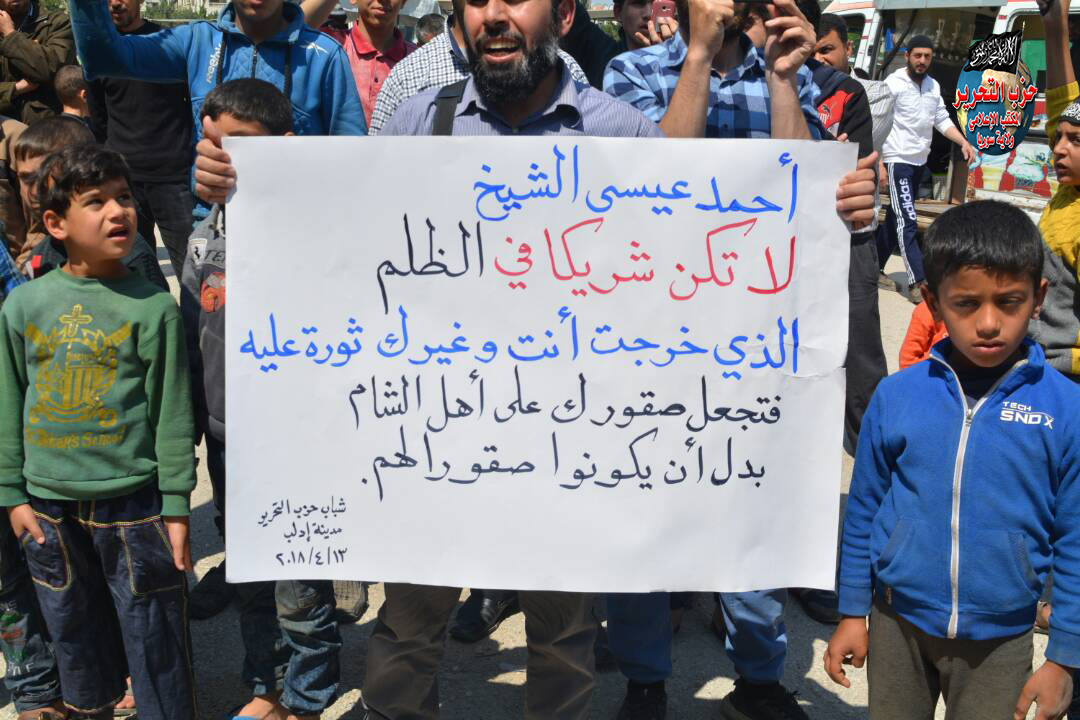 أحمد عيسى الشيخ
لا تكن شريكا في الظلم
الذي خرجت أنت وغيرك ثورة عليه
فتجعل صقورك على أهل الشام
بدل أن يكونوا صقورا لهم.
شباب حزب التحرير
مدينة إدلب
٢٠١٨/٤/١٣
حزب التحرير
المكتب الإعلامي
ولاية سوريا
adidas
TECH
SNDX